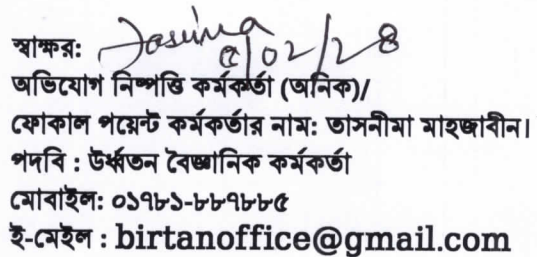 স্বাক্ষর: Tasnima ৫/০২/২৪
অভিযোগ নিষ্পত্তি কর্মকর্তা (অনিক)/
ফোকাল পয়েন্ট কর্মকর্তার নাম: তাসনীমা মাহজাবীন।
পদবি : উর্ধ্বতন বৈজ্ঞানিক কর্মকর্তা
মোবাইল: ০১৭৮১-৮৮৭৮৮৫
ই-মেইল : birtanoffice@gmail.com